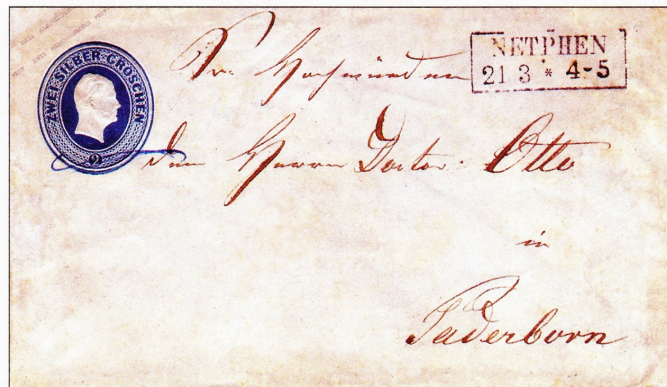 ZWEI SILBER GROSCHEN
2
NETPHEN
21 3 * 4-5
Sr. Hochwürden
dem Herrn Doctor Otto
in
Paderborn